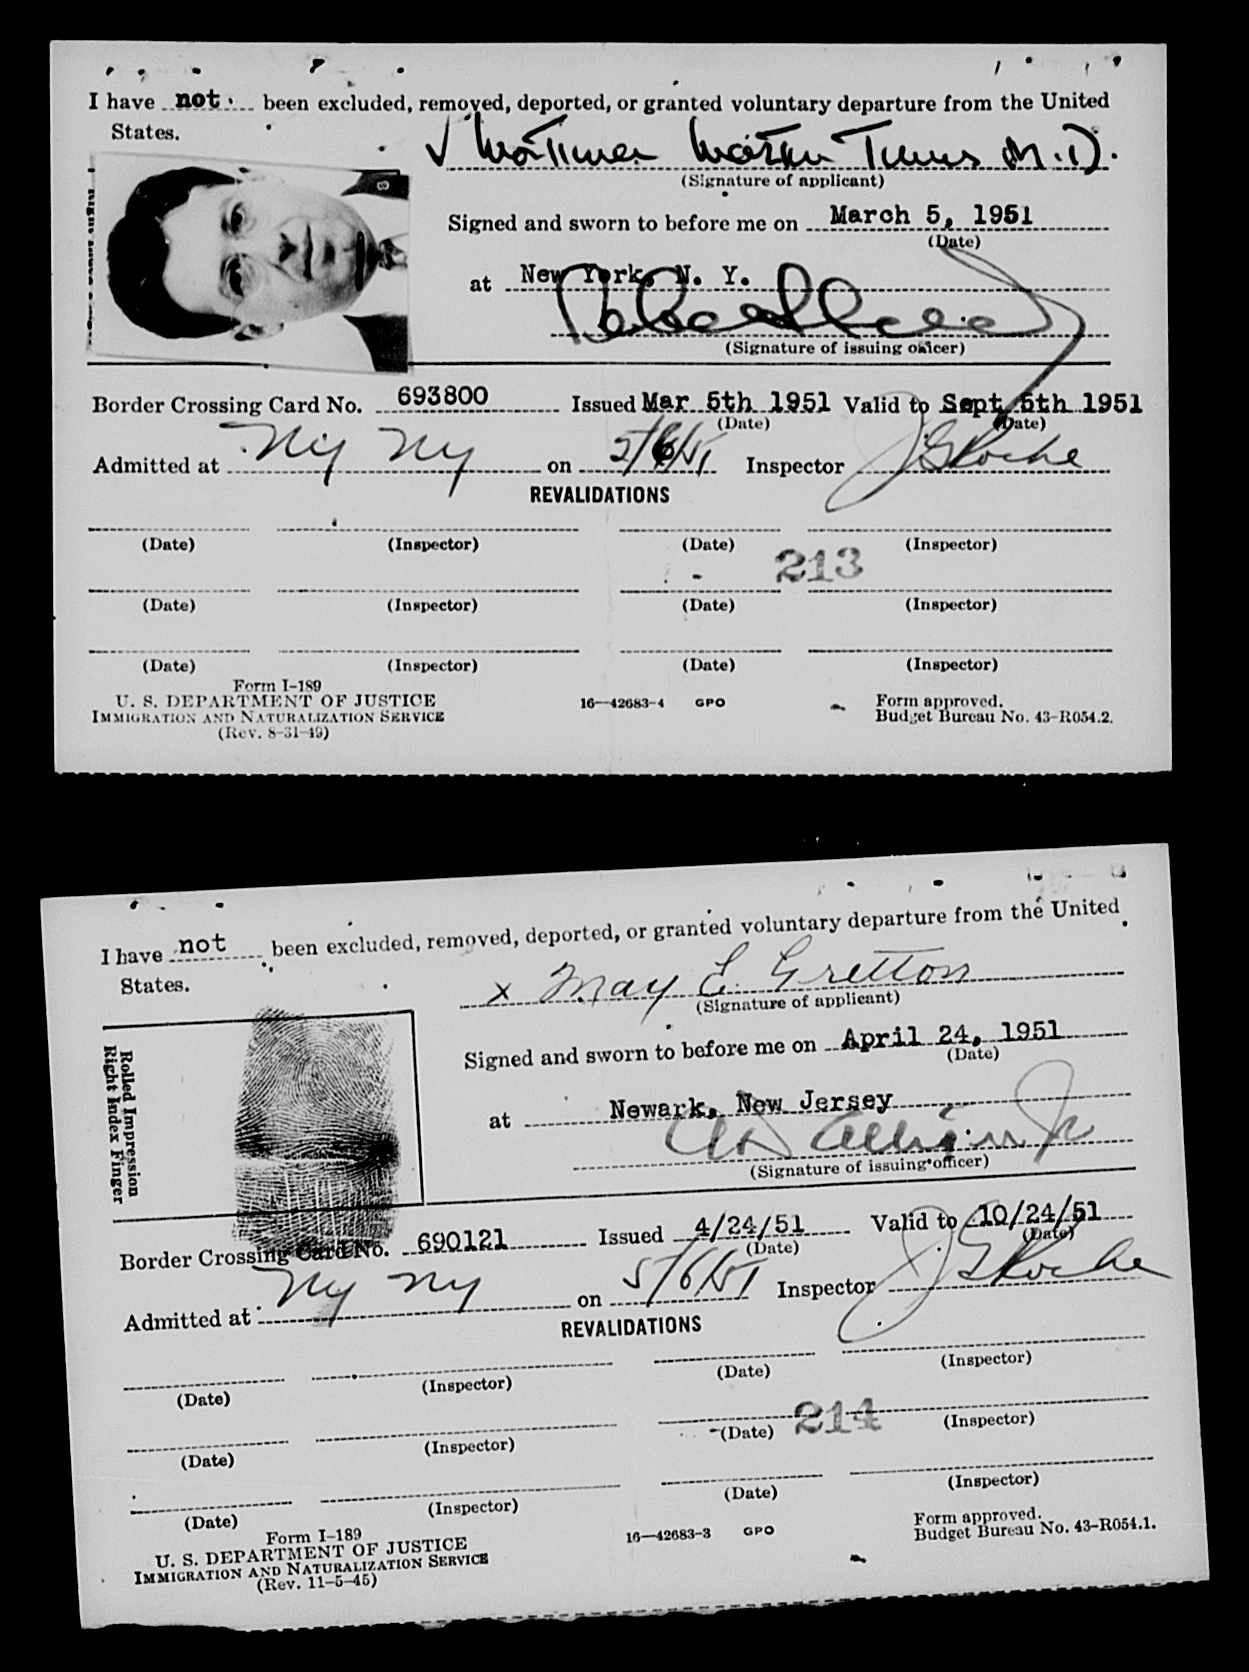 I have not been excluded, removed, deported, or granted voluntary departure from the United
States.
M.D.
(Signature of applicant)
Signed and sworn to before me on March 5, 1951
(Date)
at New York, N. Y.
(Signature of issuing officer)
Border Crossing Card No. 693800 Issued Mar 5th 1951 Valid to Sept 5th 1951
(Date) (Date)
Admitted at NY NY on 5/6/51 Inspector J G Roche
REVALIDATIONS
(Date) (Inspector) (Date) (Inspector)
213
(Date) (Inspector) (Date) (Inspector)
(Date) (Inspector) (Date) (Inspector)
Form I-189
U. S. DEPARTMENT OF JUSTICE 16—42683-4 GPO Form approved.
IMMIGRATION AND NATURALIZATION SERVICE Budget Bureau No. 43-R054.2.
(Rev. 8-31-49)
I have not been excluded, removed, deported, or granted voluntary departure from the United
States.
x May E. Gretton
(Signature of applicant)
Rolled Impression
Right Index Finger
Signed and sworn to before me on April 24, 1951
(Date)
at Newark, New Jersey
(Signature of issuing officer)
Border Crossing Card No. 690121 Issued 4/24/51 Valid to 10/24/51
(Date) (Date)
Admitted at NY NY on 5/6/51 Inspector J G Roche
REVALIDATIONS
(Date) (Inspector) (Date) (Inspector)
214
(Date) (Inspector) (Date) (Inspector)
(Date) (Inspector) (Date) (Inspector)
Form I-189
U. S. DEPARTMENT OF JUSTICE 16—42683-3 GPO Form approved.
IMMIGRATION AND NATURALIZATION SERVICE Budget Bureau No. 43-R054.1.
(Rev. 11-5-45)